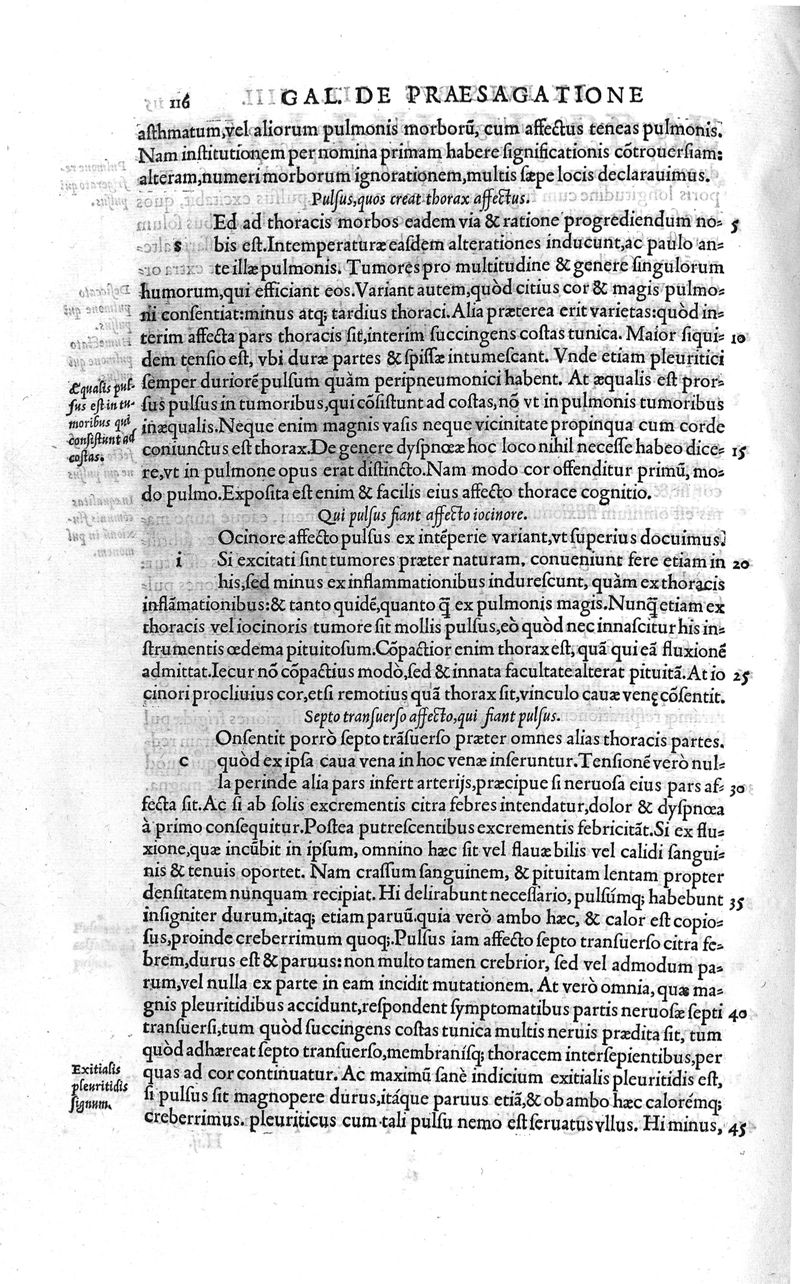 116 GAL. DE PRAESAGATIONE
asthmatum,vel aliorum pulmonis morborũ, cum affectus teneas pulmonis.
Nam institutionem per nomina primam habere significationis cõtrouersiam:
alteram,numeri morborum ignorationem,multis sæpe locis declarauimus.
Pulsus,quos creat thorax affectus.
Ed ad thoracis morbos eadem via & ratione progrediendum no= 5
s bis est.Intemperaturæ easdem alterationes inducunt,ac paulo an=
te illæ pulmonis. Tumores pro multitudine & genere singulorum
humorum,qui efficiant eos.Variant autem,quòd citius cor & magis pulmo=
ni consentiat:minus atq; tardius thoraci.Alia præterea erit varietas:quòd in=
terim affecta pars thoracis sit,interim succingens costas tunica. Maior siqui= 10
dem tensio est, vbi duræ partes & spissæ intumescant. Vnde etiam pleuritici
semper duriorẽ pulsum quàm peripneumonici habent. At æqualis est pror=
sus pulsus in tumoribus,qui cõsistunt ad costas,nõ vt in pulmonis tumoribus
inæqualis.Neque enim magnis vasis neque vicinitate propinqua cum corde
coniunctus est thorax.De genere dyspnœæ hoc loco nihil necesse habeo dice= 15
re,vt in pulmone opus erat distincto.Nam modo cor offenditur primũ, mo=
do pulmo.Exposita est enim & facilis eius affecto thorace cognitio.
Æqualis pul-
sus est in tu-
moribus qui
consistunt ad
costas.
Qui pulsus fiant affecto iocinore.
Ocinore affecto pulsus ex intẽperie variant,vt superius docuimus.
i Si excitati sint tumores præter naturam, conueniunt fere etiam in 20
his,sed minus ex inflammationibus indurescunt, quàm ex thoracis
inflãmationibus:& tanto quidẽ,quanto q̃ ex pulmonis magis.Nunq̃ etiam ex
thoracis vel iocinoris tumore sit mollis pulsus,eò quòd nec innascitur his in=
strumentis œdema pituitosum.Cõpactior enim thorax est,quã qui eã fluxionẽ
admittat.Iecur nõ cõpactius modò,sed & innata facultate alterat pituitã.At io 25
cinori procliuius cor,etsi remotius quã thorax sit,vinculo cauæ venę cõsentit.
Septo transuerso affecto,qui fiant pulsus.
Onsentit porrò septo trãsuerso præter omnes alias thoracis partes.
c quòd ex ipsa caua vena in hoc venæ inseruntur.Tensionẽ verò nul=
la perinde alia pars infert arterijs,præcipue si neruosa eius pars af= 30
fecta sit.Ac si ab solis excrementis citra febres intendatur,dolor & dyspnœa
à primo consequitur.Postea putrescentibus excrementis febricitãt.Si ex flu=
xione,quæ incũbit in ipsum, omnino hæc sit vel flauæ bilis vel calidi sangui=
nis & tenuis oportet. Nam crassum sanguinem, & pituitam lentam propter
densitatem nunquam recipiat. Hi delirabunt necessario, pulsúmq; habebunt 35
insigniter durum,itaq; etiam paruũ.quia verò ambo hæc, & calor est copio=
sus,proinde creberrimum quoq;.Pulsus iam affecto septo transuerso citra fe=
brem,durus est & paruus:non multo tamen crebrior, sed vel admodum pa=
rum,vel nulla ex parte in eam incidit mutationem. At verò omnia, quæ ma=
gnis pleuritidibus accidunt,respondent symptomatibus partis neruosæ septi 40
transuersi,tum quòd succingens costas tunica multis neruis prædita sit, tum
quòd adhæreat septo transuerso,membranísq; thoracem intersepientibus,per
quas ad cor continuatur. Ac maximũ sanè indicium exitialis pleuritidis est,
si pulsus sit magnopere durus,itáque paruus etiã,& ob ambo hæc calorémq;
creberrimus. pleuriticus cum tali pulsu nemo est seruatus vllus. Hi minus, 45
Exitialis
pleuritidis
signum.